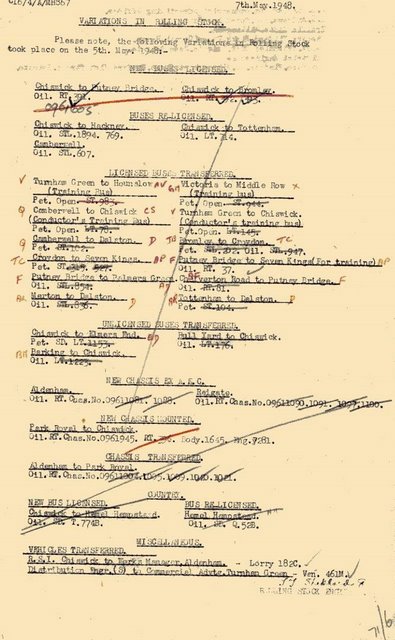 7th.May.1948.
VARIATIONS IN ROLLING STOCK.
Please note, the following Variations in Rolling Stock
took place on the 5th. May. 1948:-
NEW BUSES LICENSED.
Chiswick to Putney Bridge. Chiswick to Bromley.
Oil. RT. Oil. RT.
BUSES RE-LICENSED.
Chiswick to Hackney. Chiswick to Tottenham.
Oil. STL.1894. 769. Oil. LT.
Camberwell.
Oil. STL.607.
LICENSED BUSES TRANSFERRED.
Turnham Green to Hounslow AV Victoria to Middle Row
(Training Bus) (Training bus)
Pet. Open. ST.983. Pet. Open ST.944.
Q Camberwell to Chiswick CS Turnham Green to Chiswick.
(Conductor's Training Bus) (Conductor's Training bus)
Pet. Open. LT.78. Pet. Open LT.145.
Q Camberwell to Dalston. D TB Bromley to Croydon. TC
TC Croydon to Seven Kings. AP F Putney Bridge to Seven Kings(For training) AP
Oil. RT. 37.
F Putney Bridge to Palmers Green. Chalverton Road to Putney Bridge. F
Oil. STL.854. Oil. RT.81.
Merton to Dalston. D Tottenham to Dalston. D
Oil. STL.836. Pet. ST.104.
UNLICENSED BUSES TRANSFERRED.
Chiswick to Elmers End. ED Bull Yard to Chiswick.
Pet. SD. LT.1153. Oil. LT.176.
Barking to Chiswick.
Oil. LT.1223.
NEW CHASSIS EX A.E.C.
Aldenham. Reigate.
Oil. RT. Chas.No.09611081. 1088. Oil.RT.Chas.No.09611090.1091. 1097.1100.
NEW CHASSIS MOUNTED.
Park Royal to Chiswick.
Oil. RT. Chas.No.0961945. RT. 396. Body.1645. Eng.7281.
CHASSIS TRANSFERRED.
Aldenham to Park Royal.
Oil. RT. Chas.No.
COUNTRY.
NEW BUS LICENSED. BUS RE-LICENSED.
Chiswick to Hemel Hempstead. Hemel Hempstead.
Oil. SD. T.7748. Oil, SD. Q.528.
MISCELLANEOUS.
VEHICLES TRANSFERRED.
R.S.I. Chiswick to Works Manager, Aldenham. - Lorry 182C.
Distribution Engr.(S) to Commercial Advtg.Turnham Green - Van. 461M.
ROLLING STOCK